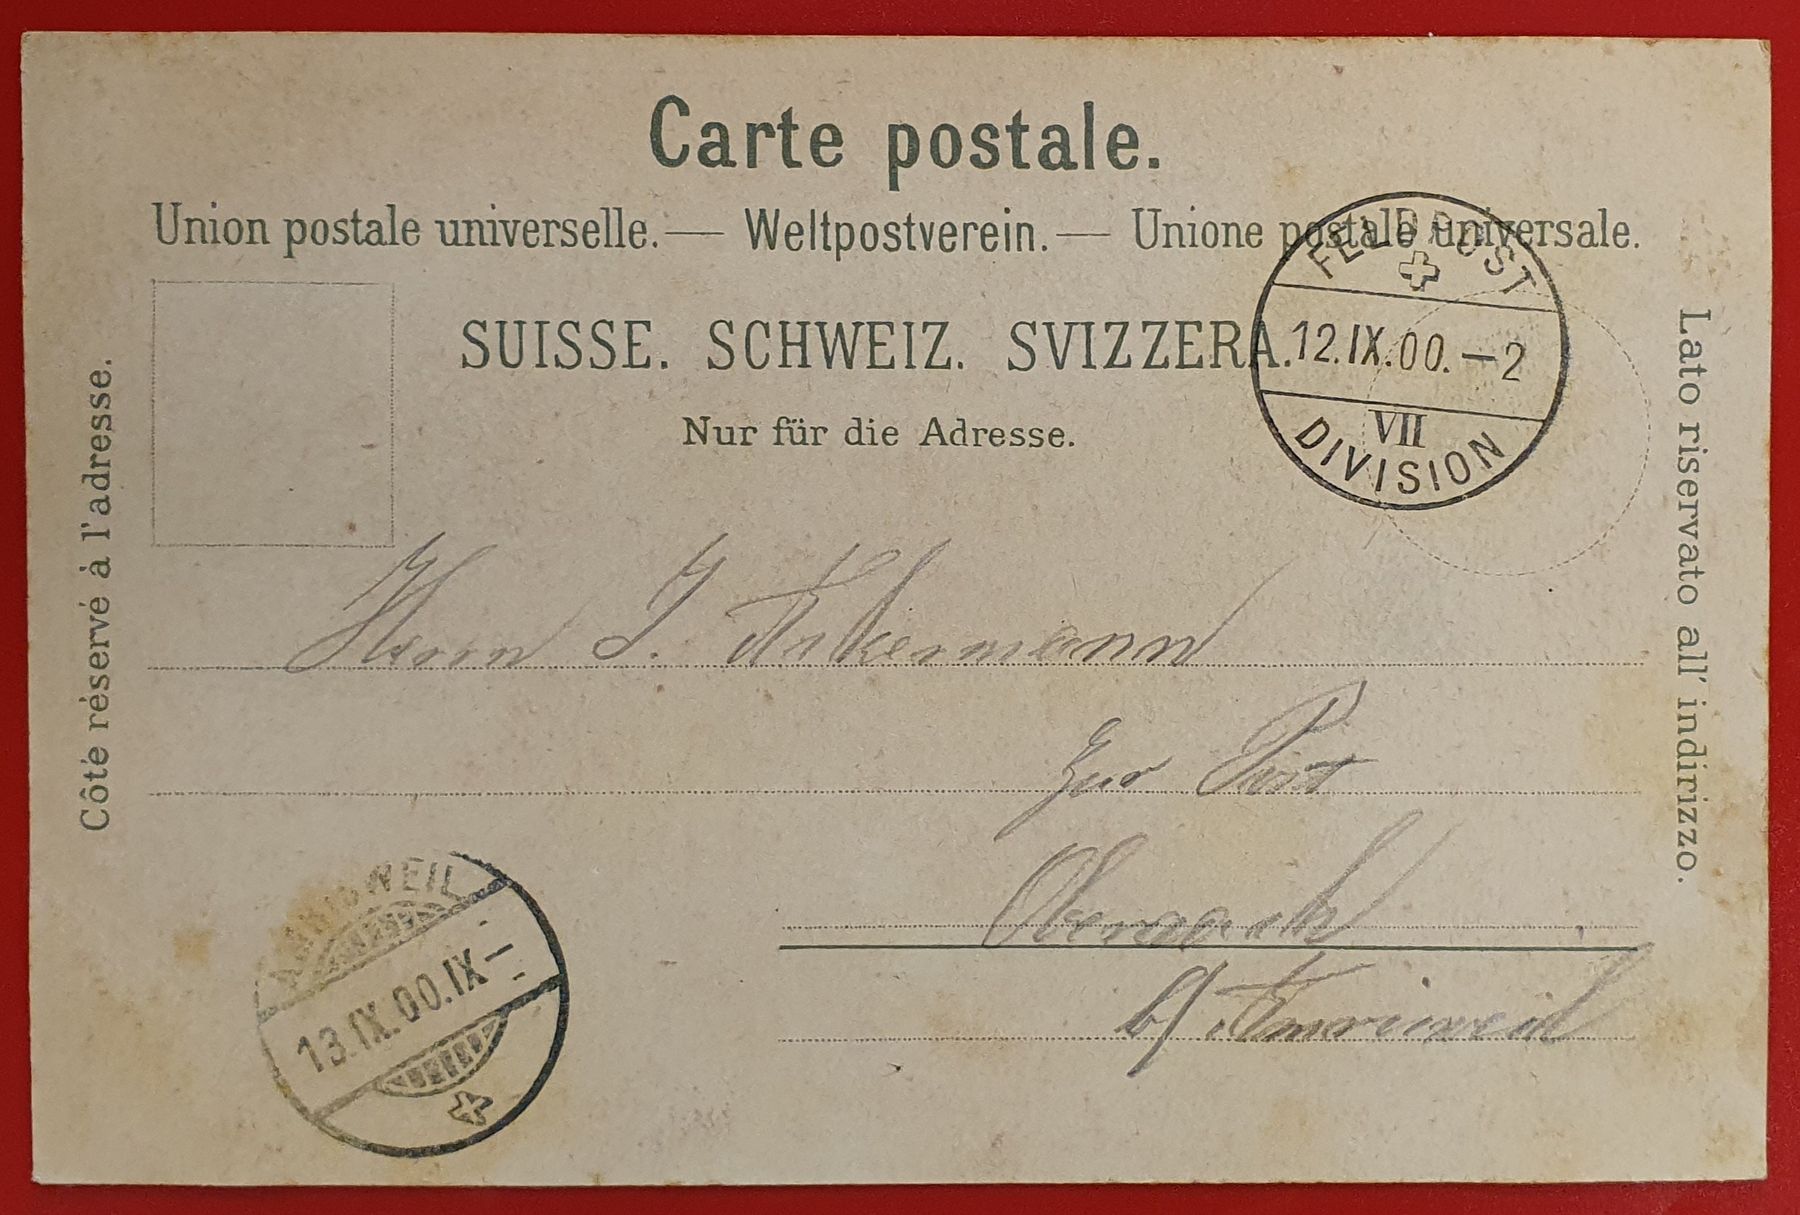 Carte postale.
Union postale universelle. — Weltpostverein. — Unione postale universale.
SUISSE. SCHWEIZ. SVIZZERA.
Nur für die Adresse.
Côté réservé à l'adresse.
Lato riservato all' indirizzo.
FELDPOST
12.IX.00.–2
VII
DIVISION
Herrn J. Ackermann
zur Post
Oberaach
b/ Amrisweil
AMRISWEIL
13.IX.00.IX–